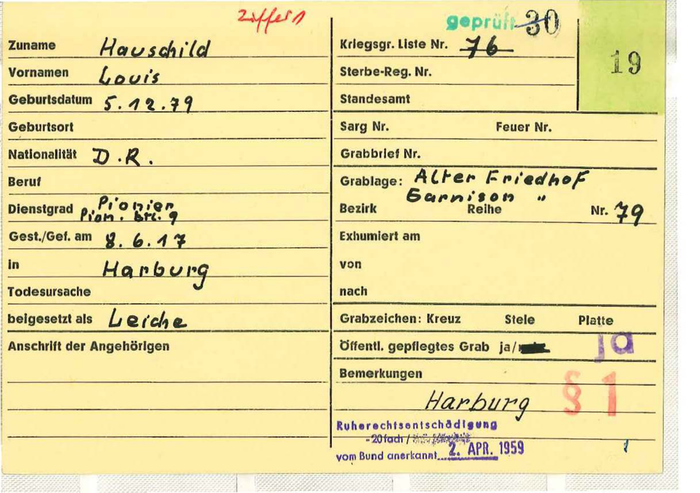 ziffer 1
Zuname Hauschild
Vornamen Louis
Geburtsdatum 5.12.79
Geburtsort
Nationalität D.R.
Beruf
Dienstgrad Pionier
Pion. btl. 9
Gest./Gef. am 8.6.17
in Harburg
Todesursache
beigesetzt als Leiche
Anschrift der Angehörigen
geprüft 30
Kriegsgr. Liste Nr. 76
19
Sterbe-Reg. Nr.
Standesamt
Sarg Nr. Feuer Nr.
Grabbrief Nr.
Grablage: Alter Friedhof
Garnison "
Bezirk Reihe Nr. 79
Exhumiert am
von
nach
Grabzeichen: Kreuz Stele Platte
Öffentl. gepflegtes Grab ja/ ja
Bemerkungen
Harburg § 1
Ruherechtsentschädigung
-20fach /
vom Bund anerkannt 2. APR. 1959